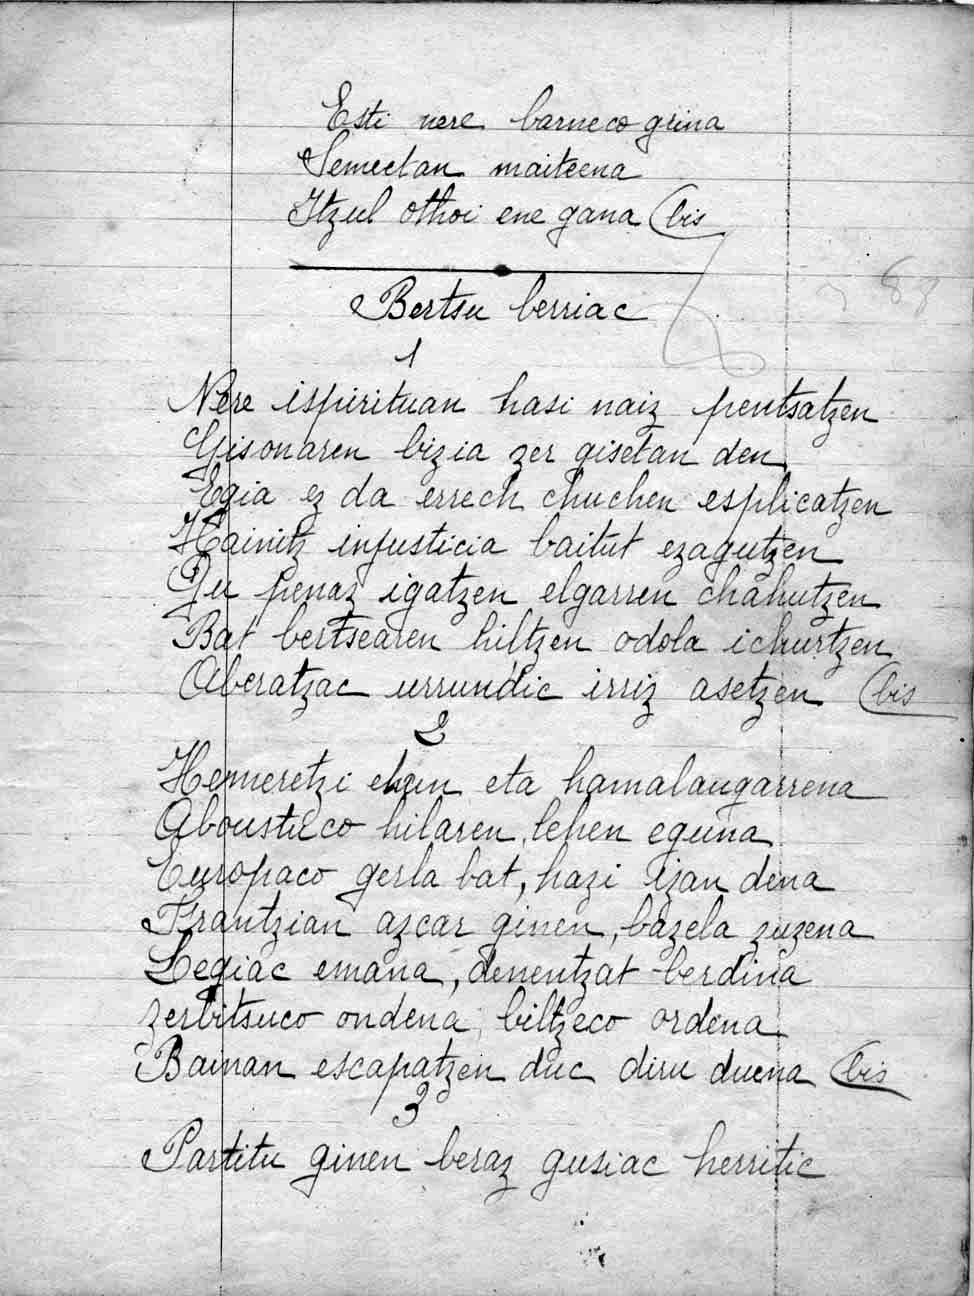 Esti nere barneco grina
Semeetan maiteena
Itzul othoi ene gana (bis
Bertsu berriac
1
Nere ispirituan hasi naiz pentsatzen
Gisonaren bizia zer gisetan den
Egia ez da errech chuchen esplicatzen
Hainitz injusticia baitut ezagutzen
Gu penaz igatzen elgarren chahutzen
Bat bertsearen hiltzen odola ichurtzen
Aberatzac urrundic irriz asetzen (bis
2
Hemeretzi ehun eta hamalaugarrena
Aboustuco hilaren, lehen eguna
Europaco gerla bat, hazi izan dena
Frantzian azcar ginen, bazela zuzena
Legiac emana, denentzat berdina
Zerbitsuco ondena, biltzeco ordena
Bainan escapatzen duc diru duena (bis
3
Partitu ginen beraz gusiac herritic